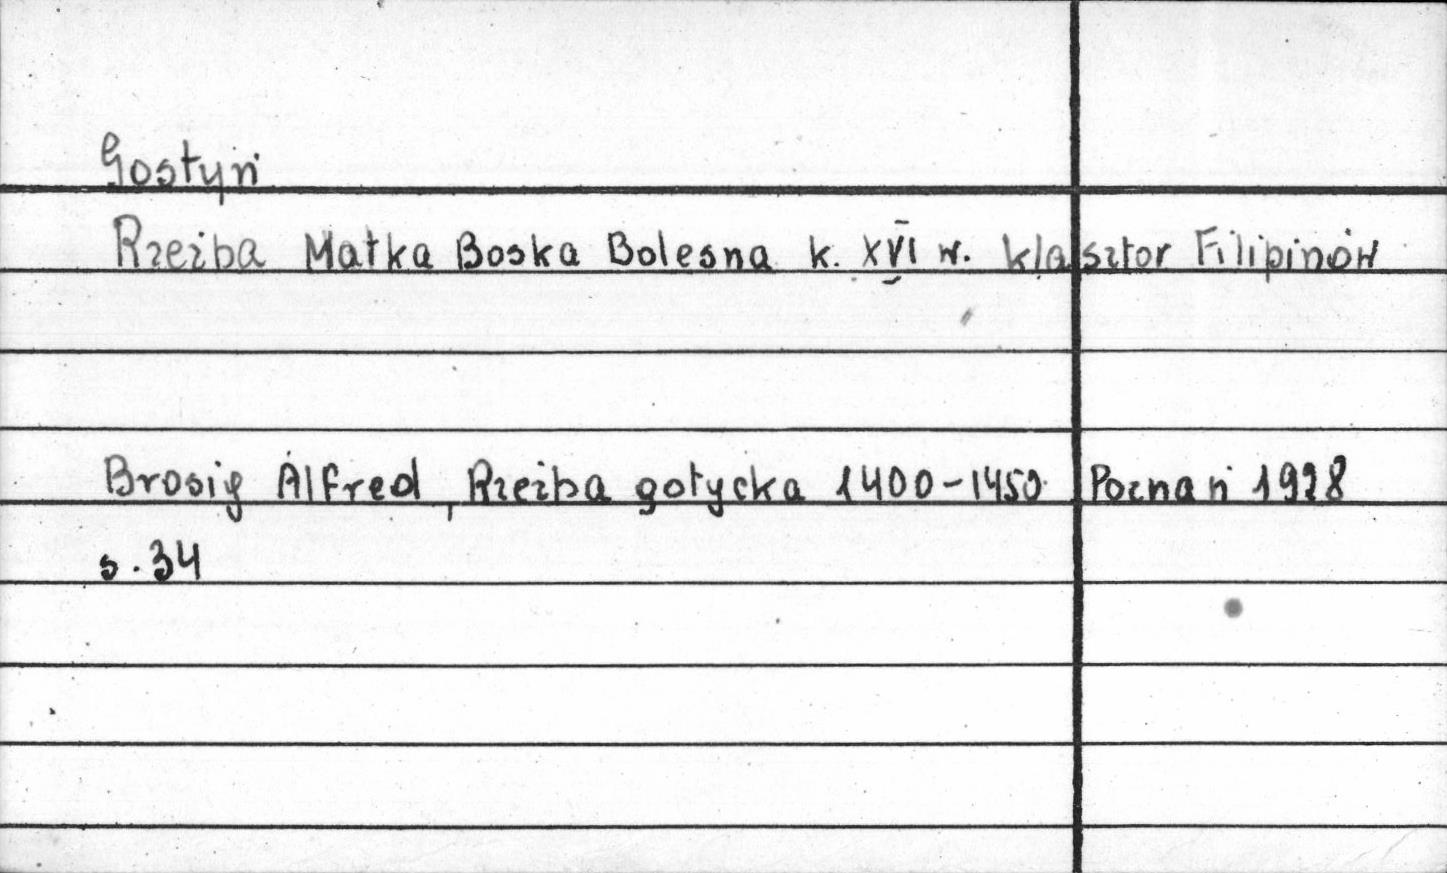 Gostyń
Rzeźba Matka Boska Bolesna k. XVI w. klasztor Filipinów
Brosig Alfred, Rzeźba gotycka 1400-1450 Poznań 1928
s. 34